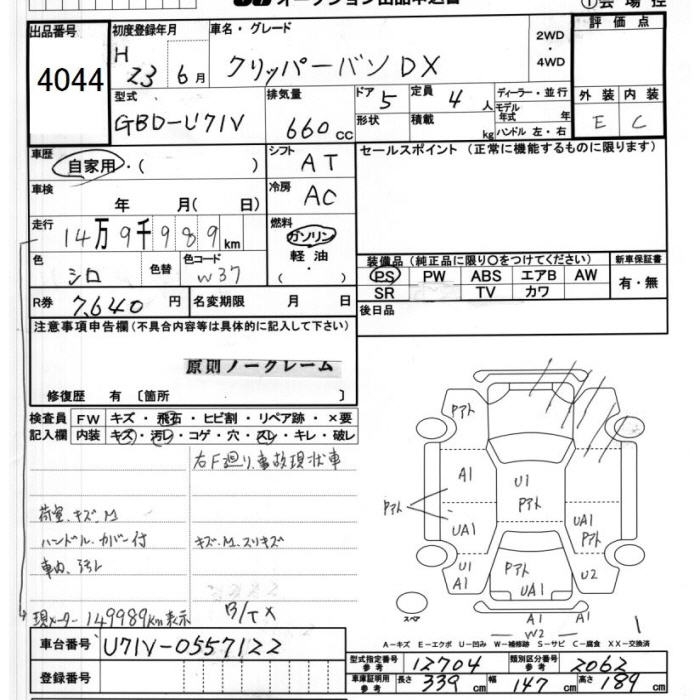 ①会場控
出品番号
4044
初度登録年月
H 23 6月
車名・グレード
クリッパーバン DX
2WD
・
4WD
評価点
型式
GBD-U71V
排気量
660cc
ドア 5
定員 4人
ディーラー・並行
モデル年式 年
形状
積載 kg
ハンドル 左・右
外装 内装
E C
車歴
自家用・( )
シフト AT
セールスポイント (正常に機能するものに限ります)
車検
年 月( 日)
冷房 AC
走行
14万9千989km
燃料
ガソリン
軽油
( ・ )
色 シロ
色替
色コード W37
装備品 (純正品に限り○をつけてください)
新車保証書
PS PW ABS エアB AW
有・無
SR TV カワ
R券 7,640円
名変期限 月 日
後日品
注意事項申告欄(不具合内容等は具体的に記入して下さい)
原則ノークレーム
修復歴 有 [箇所 ]
検査員 FW キズ・飛石・ヒビ割・リペア跡・×要
記入欄 内装 キズ・汚レ・コゲ・穴・スレ・キレ・破レ
右F廻り、事故現状車
荷室.キズ.M
ハンドル.カバー付
キズ.M.スリキズ
車内.汚レ
B/TX
現メーター149989km表示
Pアト
A1
U1
Pアト
Pアト
UA1
UA1
Pアト
U1
A1
Pアト
UA1
U2
A1
A1
W2
スペア
A-キズ E-エクボ U-凹み W-補修跡 S-サビ C-腐食 XX-交換済
車台番号 U71V-0557122
登録番号
型式指定番号 参考 12704
類別区分番号 参考 2062
車庫証明用 参考 長さ 339cm 幅 147cm 高さ 189cm